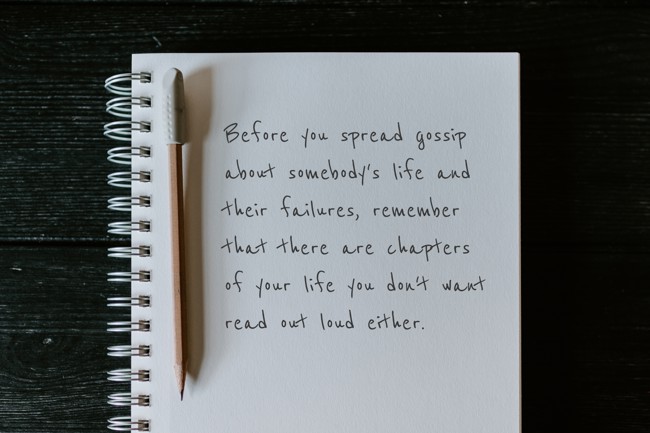 Before you spread gossip
about somebody's life and
their failures, remember
that there are chapters
of your life you don't want
read out loud either.